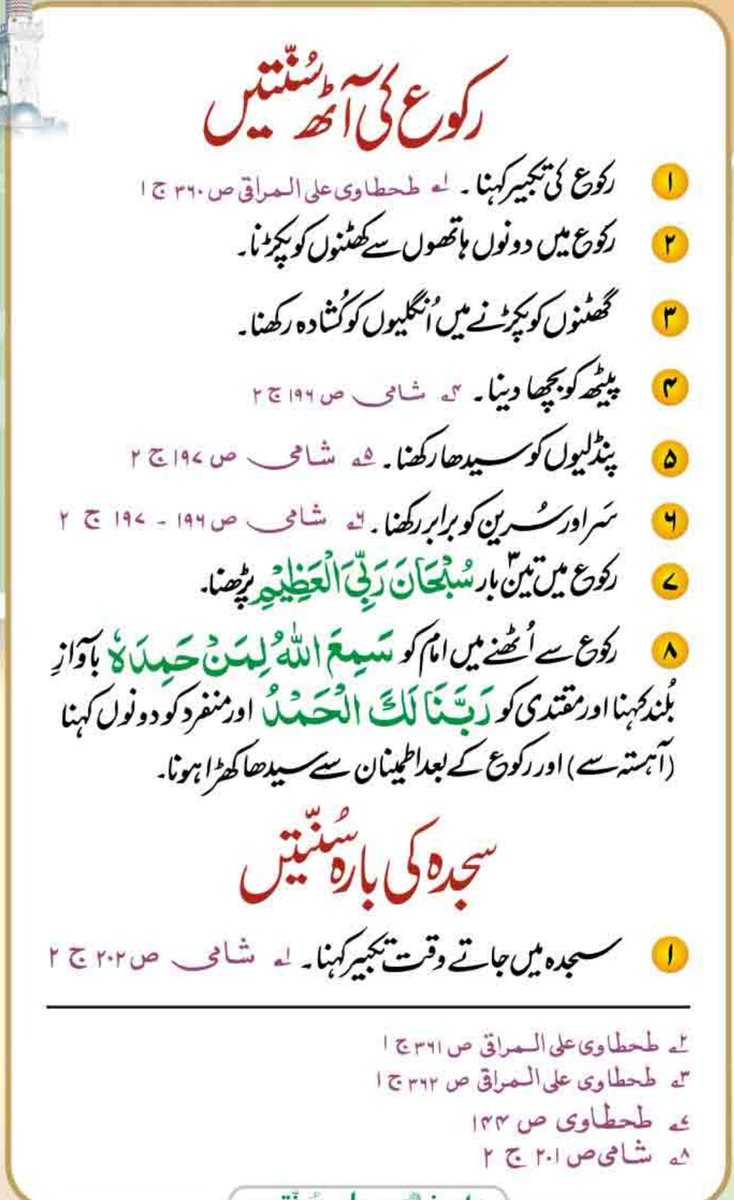 رکوع کی آٹھ سُنّتیں
۱ رکوع کی تکبیر کہنا۔ ۱؎ طحطاوی علی المراقی ص ۳۶۰ ج ۱
۲ رکوع میں دونوں ہاتھوں سے گھٹنوں کو پکڑنا۔
۳ گھٹنوں کو پکڑنے میں اُنگلیوں کو کُشادہ رکھنا۔
۴ پیٹھ کو بچھا دینا۔ ۴؎ شامی ص ۱۹۶ ج ۲
۵ پنڈلیوں کو سیدھا رکھنا۔ ۵؎ شامی ص ۱۹۷ ج ۲
۶ سَر اور سُرین کو برابر رکھنا۔ ۶؎ شامی ص ۱۹۶ - ۱۹۷ ج ۲
۷ رکوع میں تین۳ بار سُبْحَانَ رَبِّیَ الْعَظِیْمِ پڑھنا۔
۸ رکوع سے اُٹھنے میں امام کو سَمِعَ اللهُ لِمَنْ حَمِدَهٗ بآوازِ
بُلند کہنا اور مقتدی کو رَبَّنَا لَكَ الْحَمْدُ اور منفرد کو دونوں کہنا
(آہستہ سے) اور رکوع کے بعد اطمینان سے سیدھا کھڑا ہونا۔
سجدہ کی بارہ سُنّتیں
۱ سجدہ میں جاتے وقت تکبیر کہنا۔ ۱؎ شامی ص ۲۰۲ ج ۲
۲؎ طحطاوی علی المراقی ص ۳۶۱ ج ۱
۳؎ طحطاوی علی المراقی ص ۳۶۲ ج ۱
۷؎ طحطاوی ص ۱۴۴
۸؎ شامی ص ۲۰۱ ج ۲